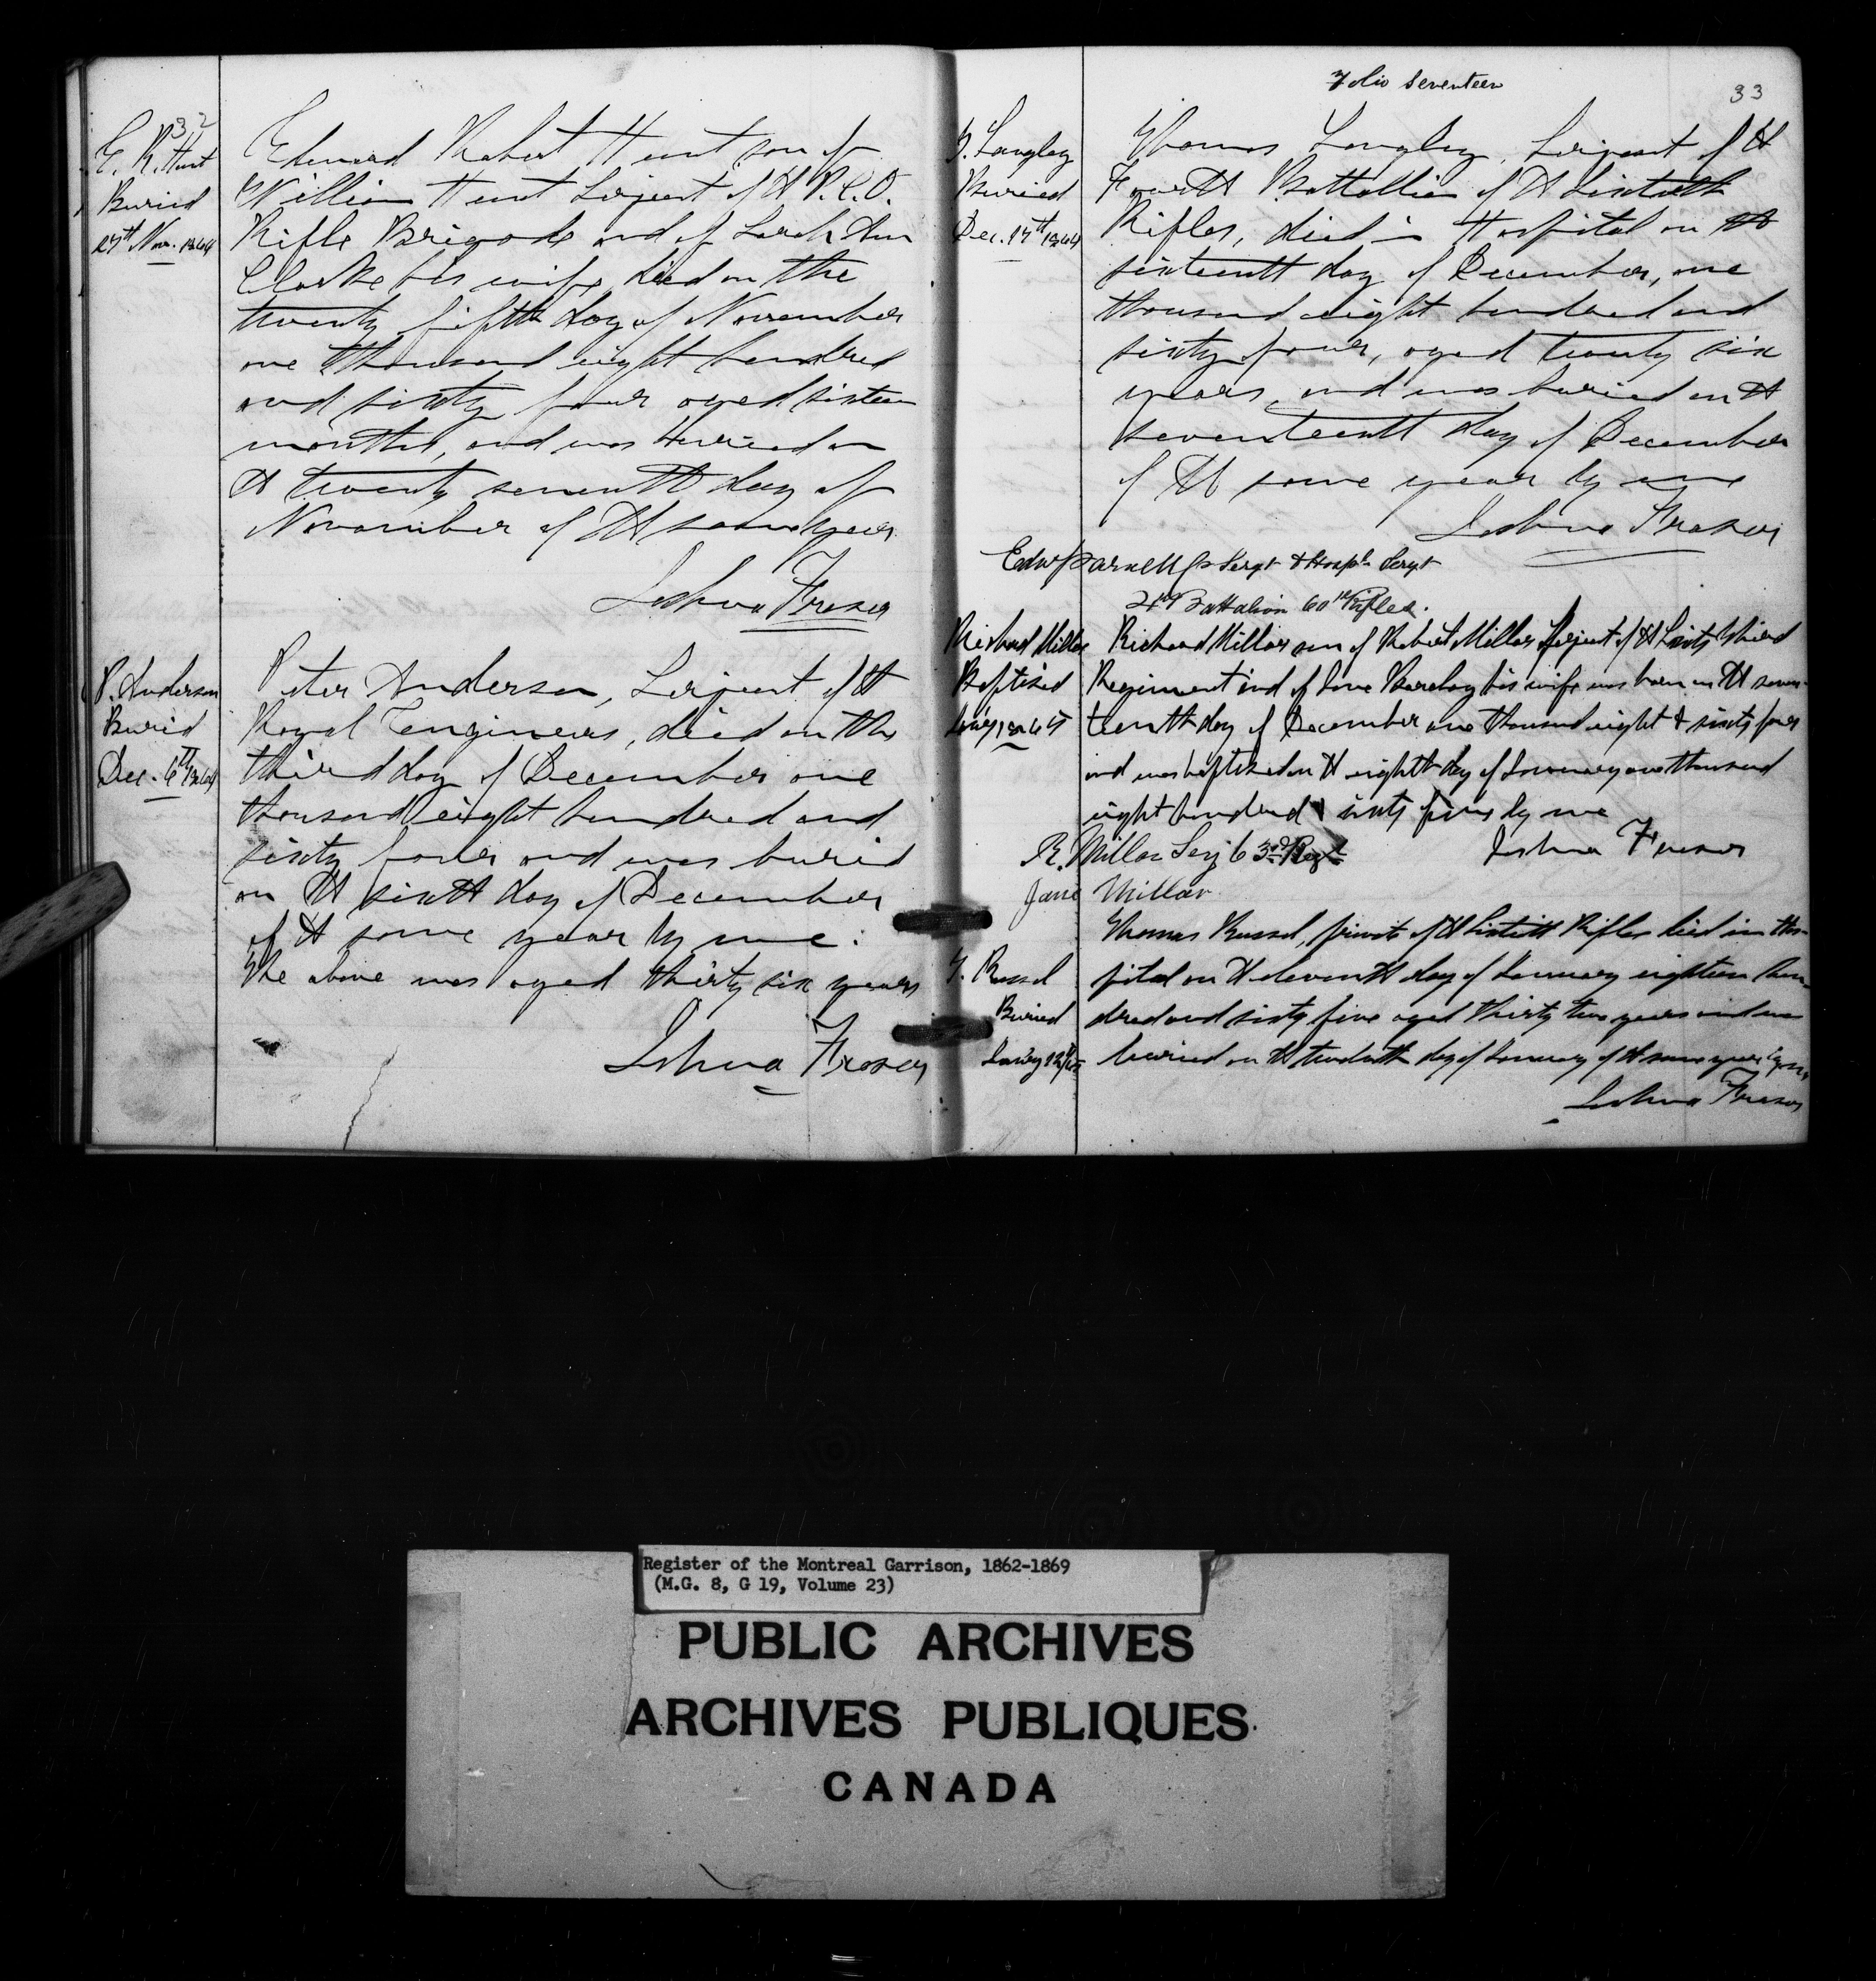 32
E. R. Hunt
Buried
27th Nov. 1864
Edward Robert Hunt son of
William Hunt Serjeant of th P.C.O.
Rifle Brigade and of Sarah Ann
Clarke his wife, died on the
twenty fifth day of November
one thousand eight hundred
and sixty four aged sixteen
months, and was buried on
th twenty seventh day of
November of th same year
Joshua Fraser
P. Anderson
Buried
Dec. 6th 1864
Peter Anderson, Serjeant of th
Royal Engineers, died on the
third day of December one
thousand eight hundred and
sixty four and was buried
on th sixth day of December
of th same year by me.
The above was aged thirty six years
Joshua Fraser
Folio Seventeen
33
T. Langley
Buried
Dec. 17th 1864
Thomas Langley, Serjeant of th
Fourth Battallion of th Sixtieth
Rifles, died in Hospital on th
sixteenth day of December, one
thousand eight hundred and
sixty four, aged twenty six
years, and was buried on th
seventeenth day of December
of th same year by me
Joshua Fraser
Edw Parnell Sergt & Hospl Sergt
Battalion 60th Rifles.
Richard Millar
Baptised
1865
Richard Millar son of Robert Millar Serjeant of th Sixty third
Regiment and of Jane Barclay his wife was born on th seven-
teenth day of December one thousand eight & sixty four
and was baptized on th eighth day of January one thousand
eight hundred & sixty five by me
R. Millar Serj 63rd Regt
Joshua Fraser
Jane Millar
T. Russel
Buried
Jan'y 12th/65
Thomas Russel, private of th Sixtieth Rifles died in Hos-
pital on th eleventh day of January eighteen hun-
dred and sixty five aged thirty two years and was
buried on th twelveth day of January of th same year by me
Joshua Fraser
Register of the Montreal Garrison, 1862-1869
(M.G. 8, G 19, Volume 23)
PUBLIC ARCHIVES
ARCHIVES PUBLIQUES
CANADA